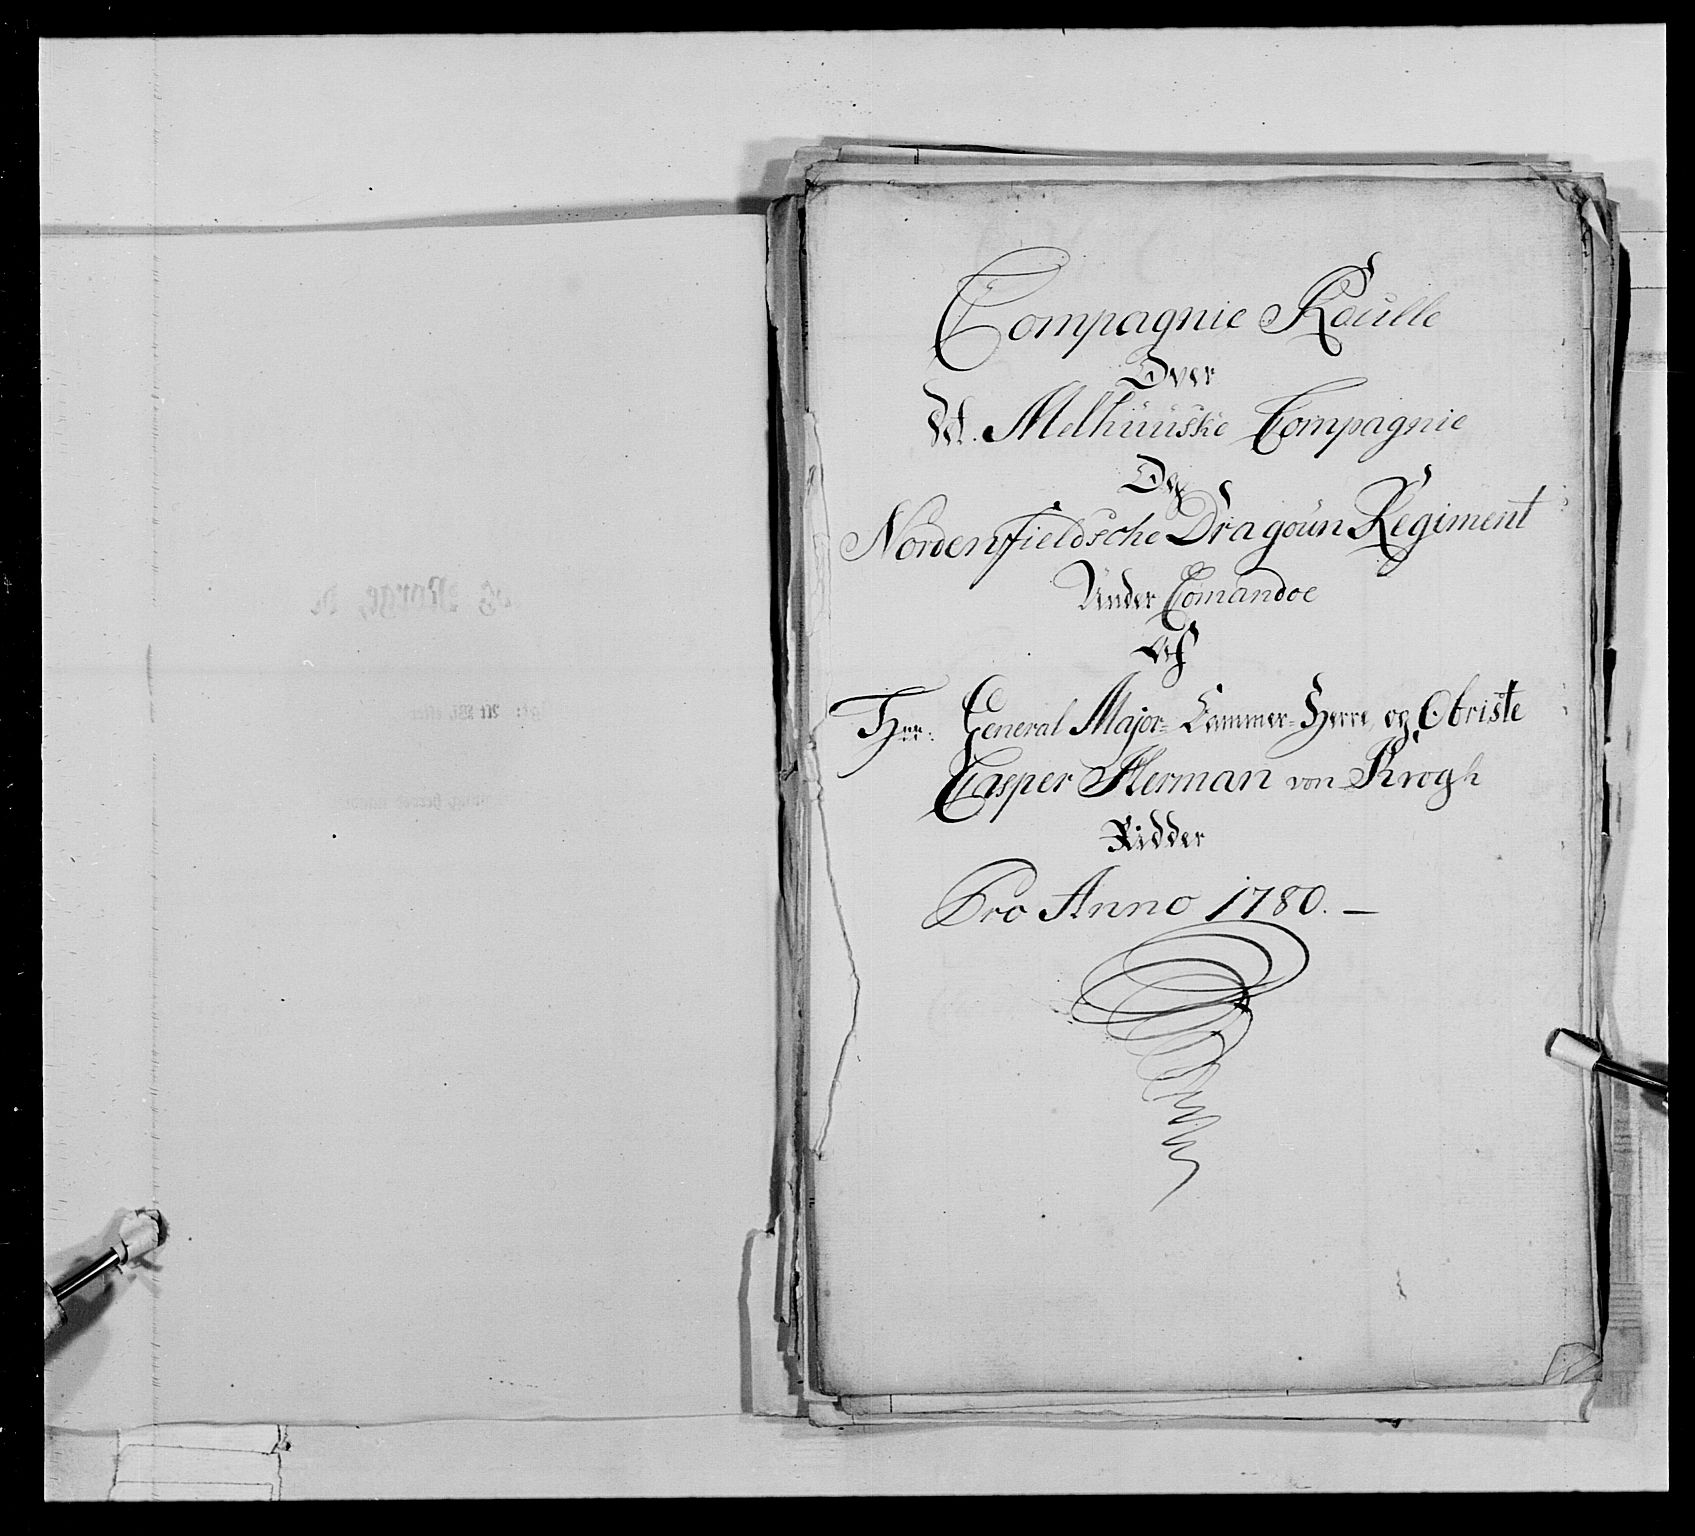 Compagnie Roulle
Over
Melhuuske Compagnie
Og
Nordenfieldsche Dragoun Regiment
Under Comandoe
Af
Hrr: General Major- Cammer-Herre, og Obriste
Casper Herman von Krogh
Ridder
Pro Anno 1780. —